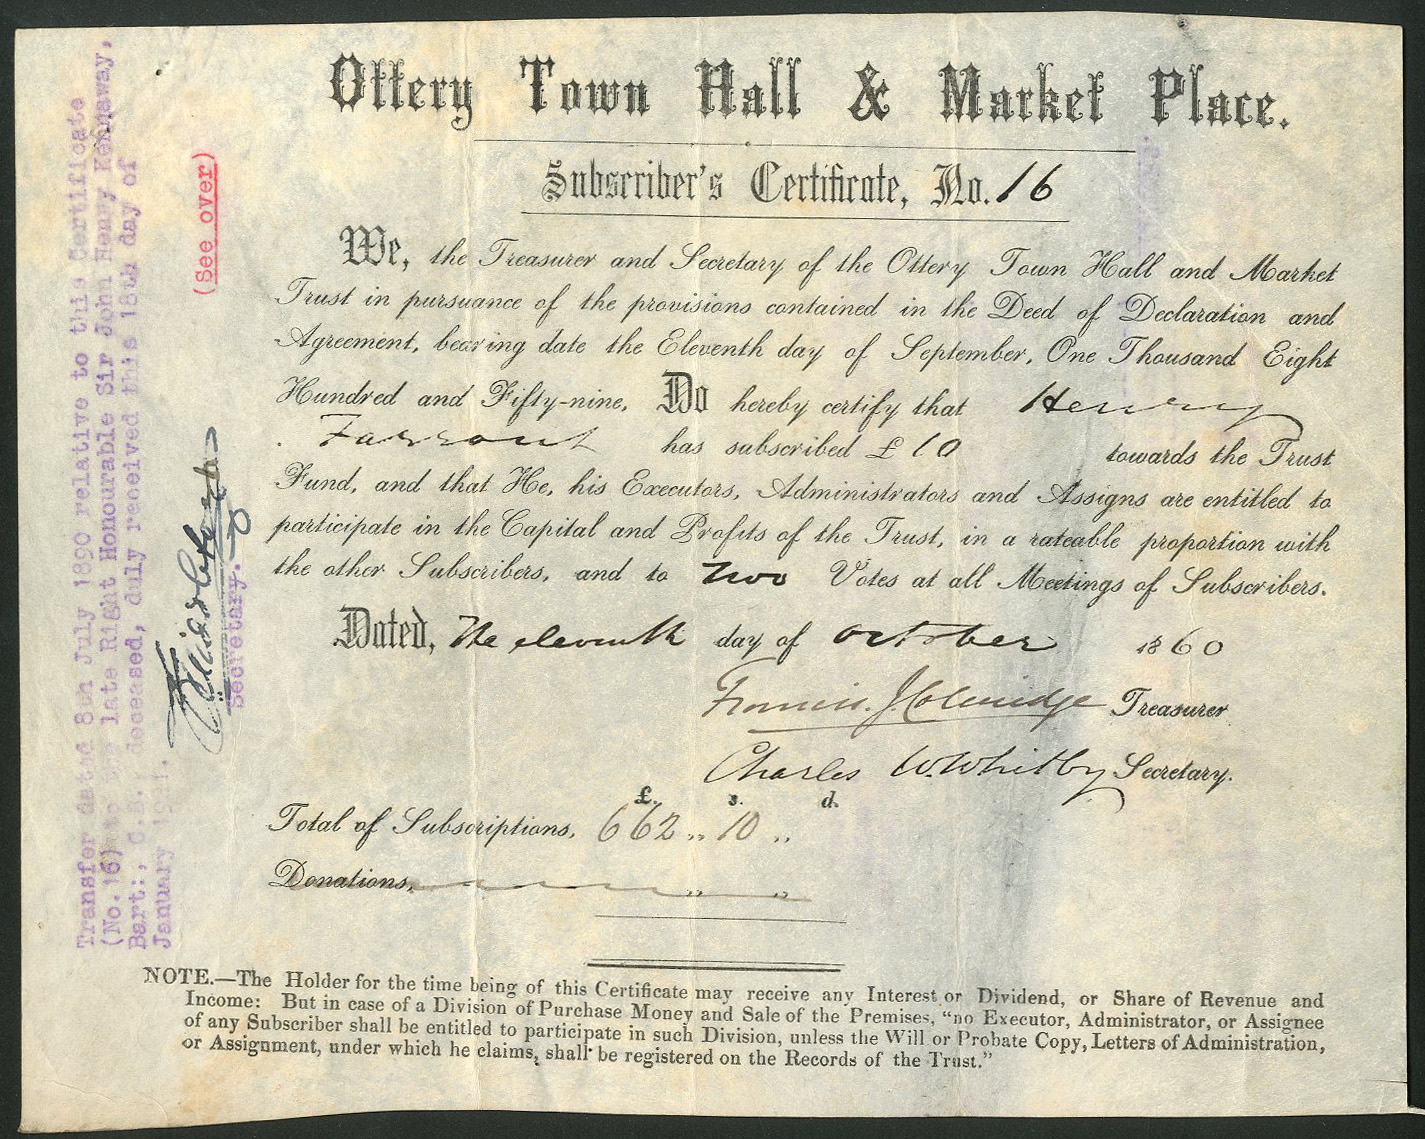 Ottery Town Hall & Market Place.
Subscriber's Certificate, No. 16
We, the Treasurer and Secretary of the Ottery Town Hall and Market
Trust in pursuance of the provisions contained in the Deed of Declaration and
Agreement, bearing date the Eleventh day of September, One Thousand Eight
Hundred and Fifty-nine, Do hereby certify that Henry
Farrant has subscribed £ 10 towards the Trust
Fund, and that He, his Executors, Administrators and Assigns are entitled to
participate in the Capital and Profits of the Trust, in a rateable proportion with
the other Subscribers, and to Two Votes at all Meetings of Subscribers.
Dated, The eleventh day of October 1860
Francis J Coleridge Treasurer
Charles W. Whitby Secretary.
£. s. d.
Total of Subscriptions, 662 „ 10 „
Donations, „ „
NOTE.—The Holder for the time being of this Certificate may receive any Interest or Dividend, or Share of Revenue and
Income: But in case of a Division of Purchase Money and Sale of the Premises, "no Executor, Administrator, or Assignee
of any Subscriber shall be entitled to participate in such Division, unless the Will or Probate Copy, Letters of Administration,
or Assignment, under which he claims, shall be registered on the Records of the Trust."
Transfer dated 8th July 1890 relative to this Certificate
(No.16) to the late Right Honourable Sir John Henry Kennaway,
Bart:, C.B., deceased, duly received this 18th day of
January
Secretary.
(See over)